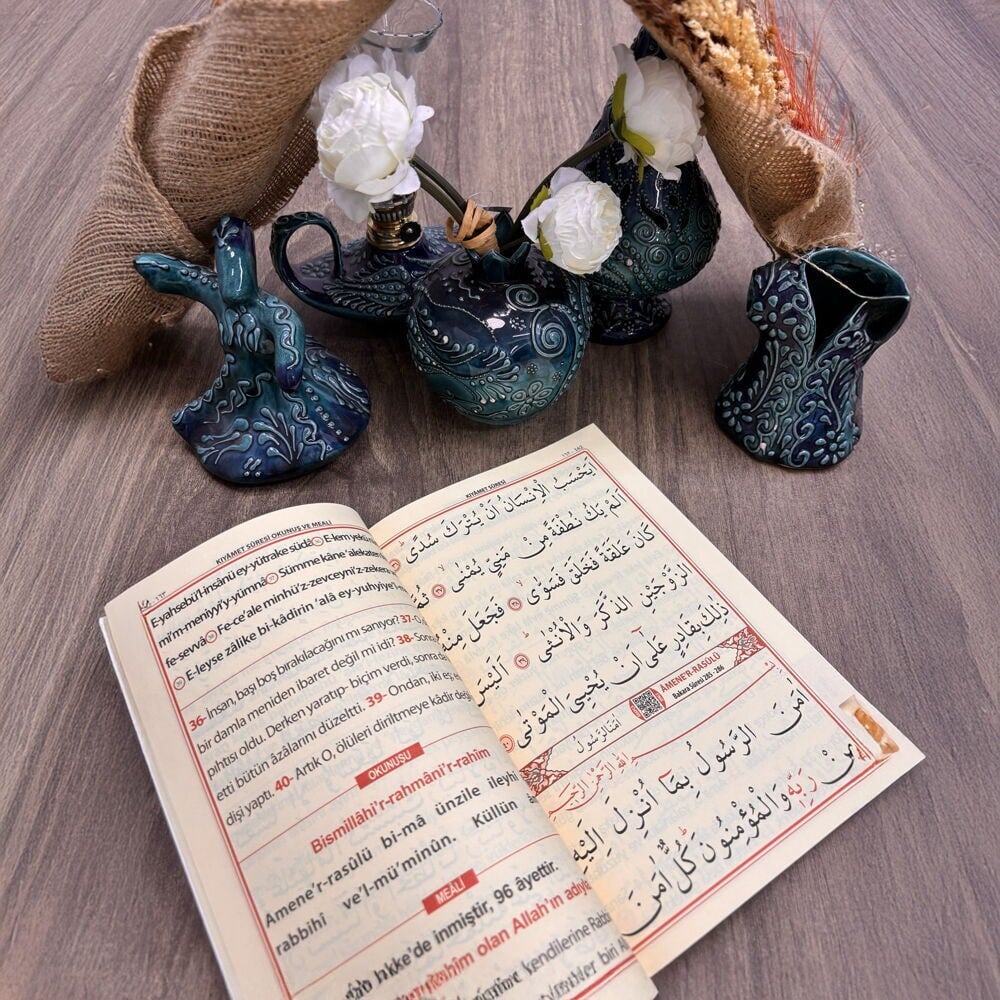 KIYÂMET SÛRESİ OKUNUŞ VE MEALİ
١٦٣
E-yahsebü'l-insânü ey-yütrake südâ 36 E-lem yekü
mi'm-meniyyi'y-yümnâ 37 Sümme kâne 'alekaten
fe-sevvâ 38 Fe-ce'ale minhü'z-zevceyni'z-zekera
39 E-leyse zâlike bi-kâdirin 'alâ ey-yuhyiye'l
36- İnsan, başı boş bırakılacağını mı sanıyor? 37- O
bir damla meniden ibaret değil mi idi? 38- Sonra
pıhtısı oldu. Derken yaratıp- biçim verdi, sonra da
etti bütün âzâlarını düzeltti. 39- Ondan, iki eş, e
dişi yaptı. 40- Artık O, ölüleri diriltmeye kâdir değ
OKUNUŞU
Bismillâhi'r-rahmâni'r-rahîm
Amene'r-rasûlü bi-mâ ünzile ileyhi
rabbihî ve'l-mü'minûn. Küllün â
MEALİ
inmiştir, 96 âyettir.
olan Allah'ın adıyla
kendilerine Rabb
biri Al
KIYÂMET SÛRESİ
١٦٣
اَيَحْسَبُ الْاِنْسَانُ اَنْ يُتْرَكَ سُدًىۜ ٣٦
اَلَمْ يَكُ نُطْفَةً مِنْ مَنِيٍّ يُمْنٰىۙ ٣٧ ثُمَّ
كَانَ عَلَقَةً فَخَلَقَ فَسَوّٰىۙ ٣٨ فَجَعَلَ مِنْهُ
الزَّوْجَيْنِ الذَّكَرَ وَالْاُنْثٰىۜ ٣٩ اَلَيْسَ
ذٰلِكَ بِقَادِرٍ عَلٰٓى اَنْ يُحْيِيَ الْمَوْتٰى ٤٠
AMENE'R-RASÛLÜ
Bakara Sûresi 285 - 286
اٰمَنَ الرَّسُولُ
بِسْمِ اللّٰهِ الرَّحْمٰنِ الرَّحِيمِ
اٰمَنَ الرَّسُولُ بِمَٓا اُنْزِلَ اِلَيْهِ
مِنْ رَبِّهٖ وَالْمُؤْمِنُونَۜ كُلٌّ اٰمَنَ